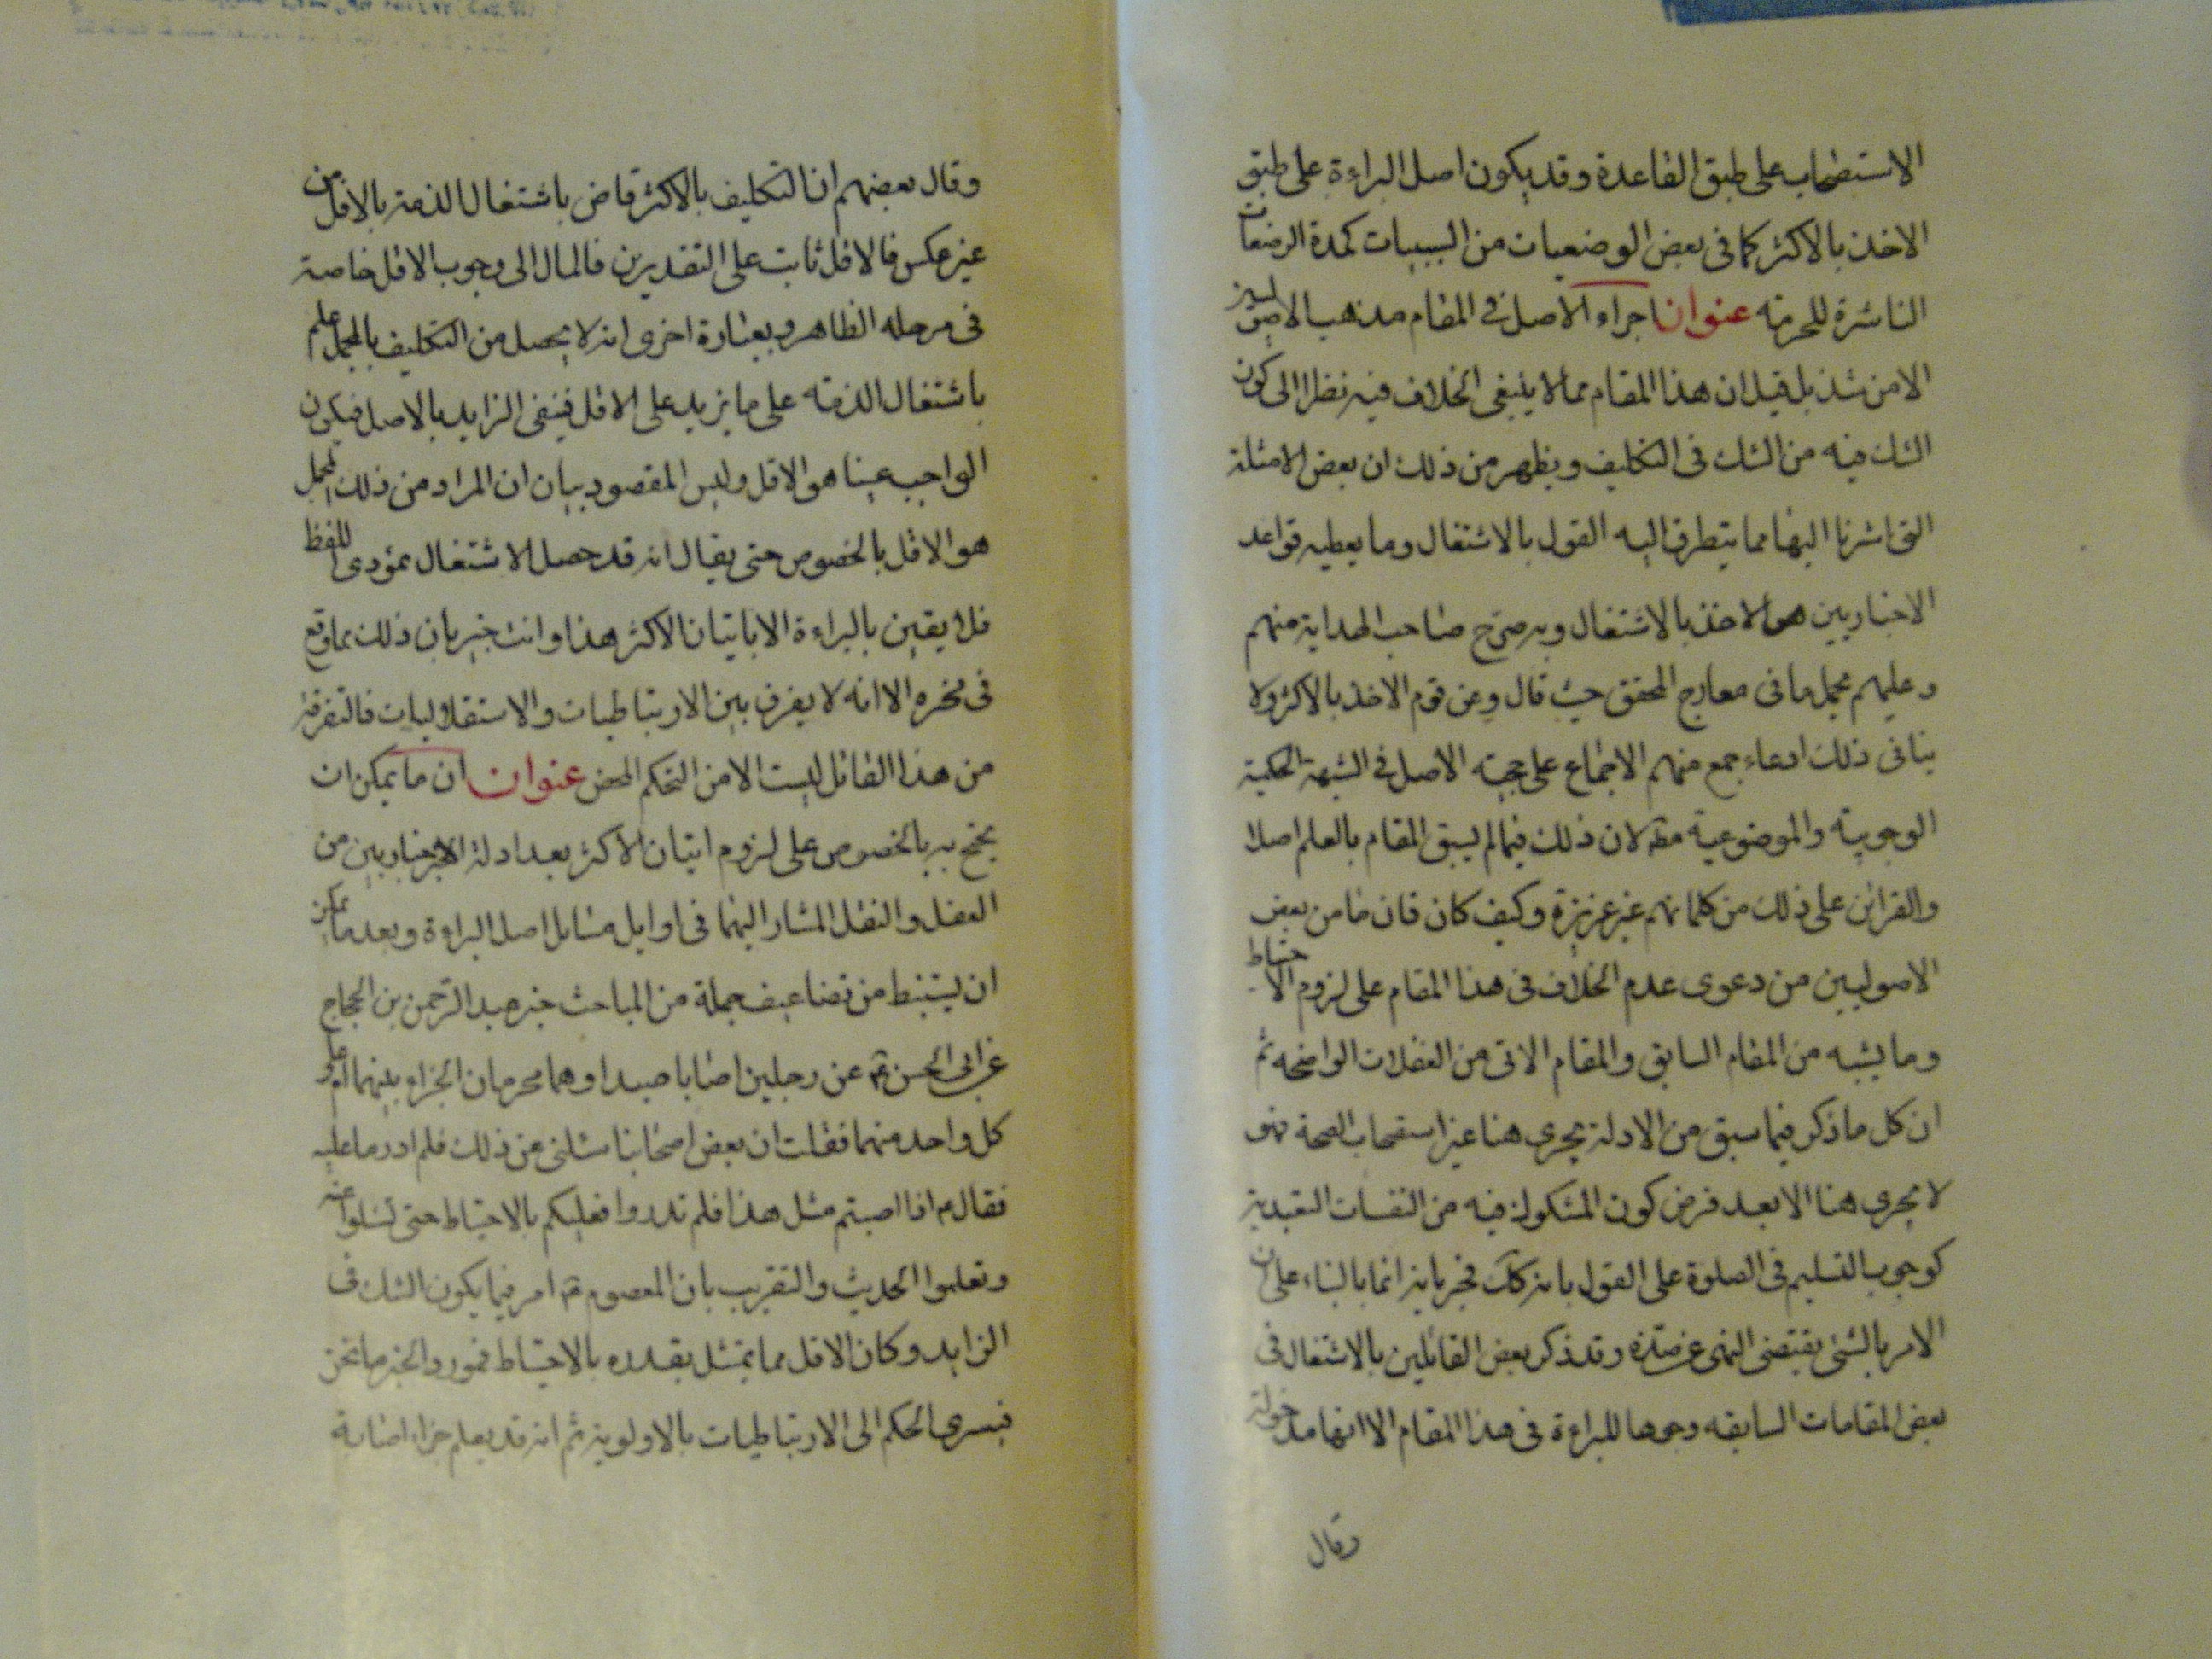 الاستصحاب على طبق القاعدة وقد يكون اصل البراءة على طبق
الاخذ بالاكثر كما فى بعض الوضعيات من السببيات كمدة الرضعات
الناشرة للحرمة عنوان اجراء الاصل فى المقام مذهب الاصوليين
الا من شذ بل قيل ان هذا المقام مما لا ينبغى الخلاف فيه نظرا الى كون
الشك فيه من الشك فى التكليف ويظهر من ذلك ان بعض الامثلة
التى اشرنا اليها مما يتطرق اليه القول بالاشتغال وما يعطيه قواعد
الاخباريين هو الاخذ بالاشتغال وبه صرّح صاحب الهداية منهم
وعليهم يحمل ما فى معارج المحقق حيث قال وعن قوم الاخذ بالاكثر ولا
ينافى ذلك ادعاء جمع منهم الاجماع على حجية الاصل فى الشبهة الحكمية
الوجوبية والموضوعية مط لان ذلك فيما لم يسبق المقام بالعلم اصلا
والقرائن على ذلك من كلماتهم غير عزيزة وكيف كان فان ما من بعض
الاصوليين من دعوى عدم الخلاف فى هذا المقام على لزوم الاحتياط
وما يشبه من المقام السابق والمقام الاتى من الغفلات الواضحة ثم
ان كل ما ذكر فيما سبق من الادلة يجرى هنا غير استصحاب الصحة فهو
لا يجرى هنا الا بعد فرض كون المشكوك فيه من النفسات التعبدية
كوجوب التسليم فى الصلوة على القول بانه كك فجريانه انما بالبناء على ان
الامر بالشئ يقتضى النهى عن ضدّه وقد ذكر بعض القائلين بالاشتغال فى
بعض المقامات السابقة وجوها للبراءة فى هذا المقام الا انها مدخولة
وقال
وقال بعضهم ان التكليف بالاكثر قاض باشتغال الذمة بالاقل من
غير عكس فالاقل ثابت على التقديرين فالمال الى وجوب الاقل خاصة
فى مرحلة الظاهر وبعبارة اخرى انه لا يحصل من التكليف بالمجمل علم
باشتغال الذمة على ما يزيد على الاقل فينفى الزايد بالاصل فيكون
الواجب عينا هو الاقل وليس المقصود بيان ان المراد من ذلك المجمل
هو الاقل بالخصوص حتى يقال انه قد حصل الاشتغال بمؤدى اللفظ
فلا يقين بالبراءة الا باتيان الاكثر هذا وانت خبير بان ذلك مما وقع
فى مخره الا انه لا يفرق بين الارتباطيات والاستقلاليات فالتفرقة
من هذا القائل ليست الا من التحكم المحض عنوان ان ما يمكن ان
يحتج به بالخصوص على لزوم اتيان الاكثر بعد ادلة الاخباريين من
العقل والنقل المشار اليهما فى اوايل مسايل اصل البراءة وبعد ما يمكن
ان يستنبط من تضاعيف جملة من المباحث خبر عبد الرحمن بن الحجاج
عن ابى الحسن ع عن رجلين اصابا صيدا وهما محرمان الجزاء بينهما او على
كل واحد منهما فقلت ان بعض اصحابنا سئلنى عن ذلك فلم ادر ما عليه
فقال ع اذا اصبتم مثل هذا فلم تدروا فعليكم بالاحتياط حتى تسئلوا عنه
وتعلموا الحديث والتقريب بان المعصوم ع امر فيما يكون الشك فى
الزايد وكان الاقل مما يمتثل بقدره بالاحتياط فمورد الخبر ما نحن
فيسرى الحكم الى الارتباطيات بالاولوية ثم انه قد يعلم جزاء اصابة